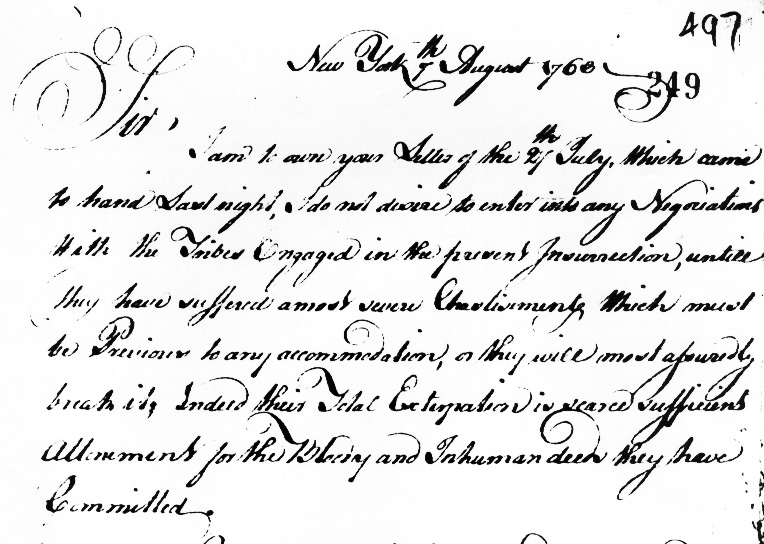 497
New York 7th August 1763
249
Sir,
I am to own your Letter of the 27th July, Which came
to hand Last night, I do not desire to enter into any Negociations
With the Tribes Engaged in the present Insurrection, untill
they have suffered a most severe Chastisement, Which must
be Previous to any accommodation, or they will most assuredly
break it; Indeed their Total Extirpation is scarce sufficient
Attonement for the Bloody and Inhuman deeds they have
Committed.